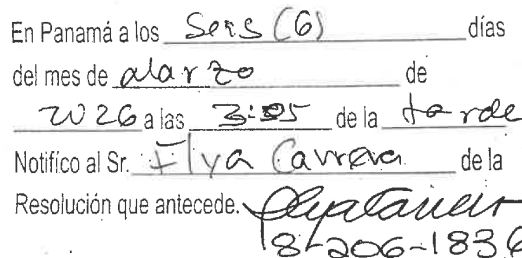 En Panamá a los Seis (6) días
del mes de Marzo de
2026 a las 3:05 de la tarde
Notifíco al Sr. Elya Carrera de la
Resolución que antecede.
8-206-1836